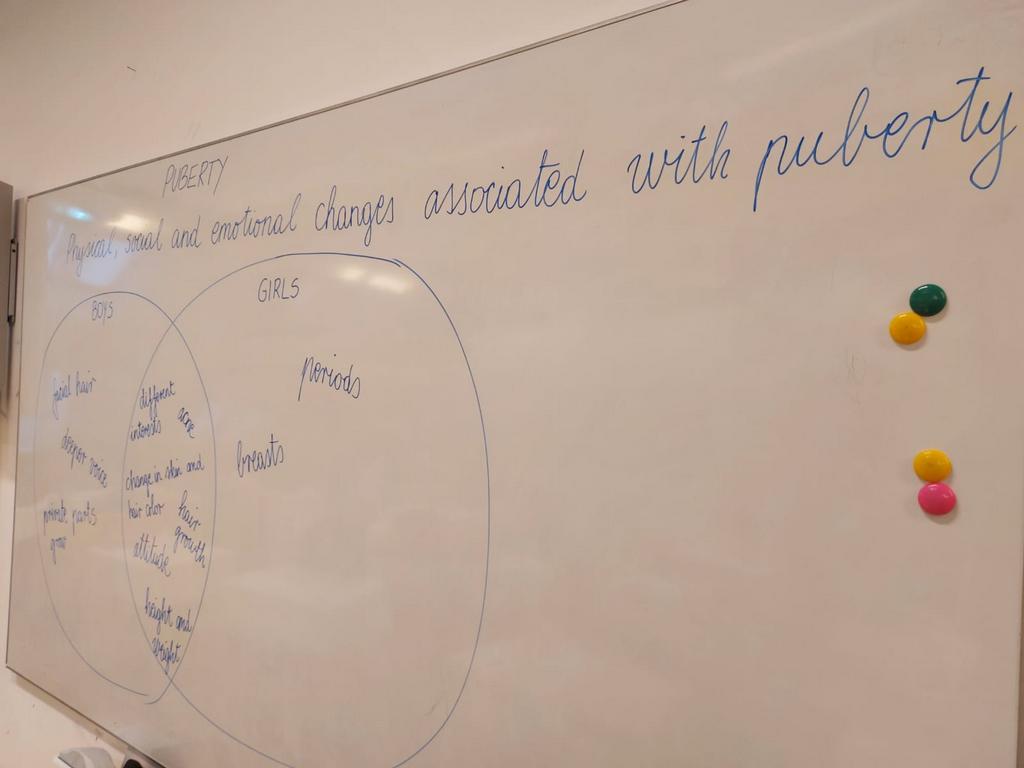 PUBERTY
Physical, social and emotional changes associated with puberty
BOYS
facial hair
deeper voice
private parts
grow
different
interests
acne
change in skin and
hair color
hair
growth
attitude
height and
weight
GIRLS
periods
breasts